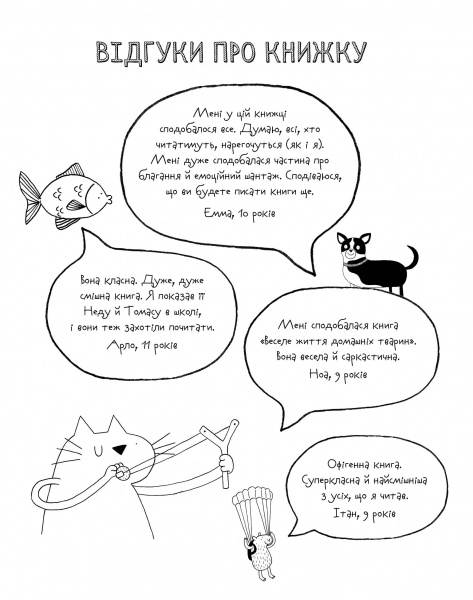 ВІДГУКИ ПРО КНИЖКУ
Мені у цій книжці
сподобалося все. Думаю, всі, хто
читатимуть, нарегочуться (як і я).
Мені дуже сподобалася частина про
благання й емоційний шантаж. Сподіваюся,
що ви будете писати книги ще.
Емма, 10 років
Вона класна. Дуже, дуже
смішна книга. Я показав її
Неду й Томасу в школі,
і вони теж захотіли почитати.
Арло, 11 років
Мені сподобалася книга
«Веселе життя домашніх тварин».
Вона весела й саркастична.
Ноа, 9 років
Офігенна книга.
Суперкласна й найсмішніша
з усіх, що я читав.
Ітан, 9 років